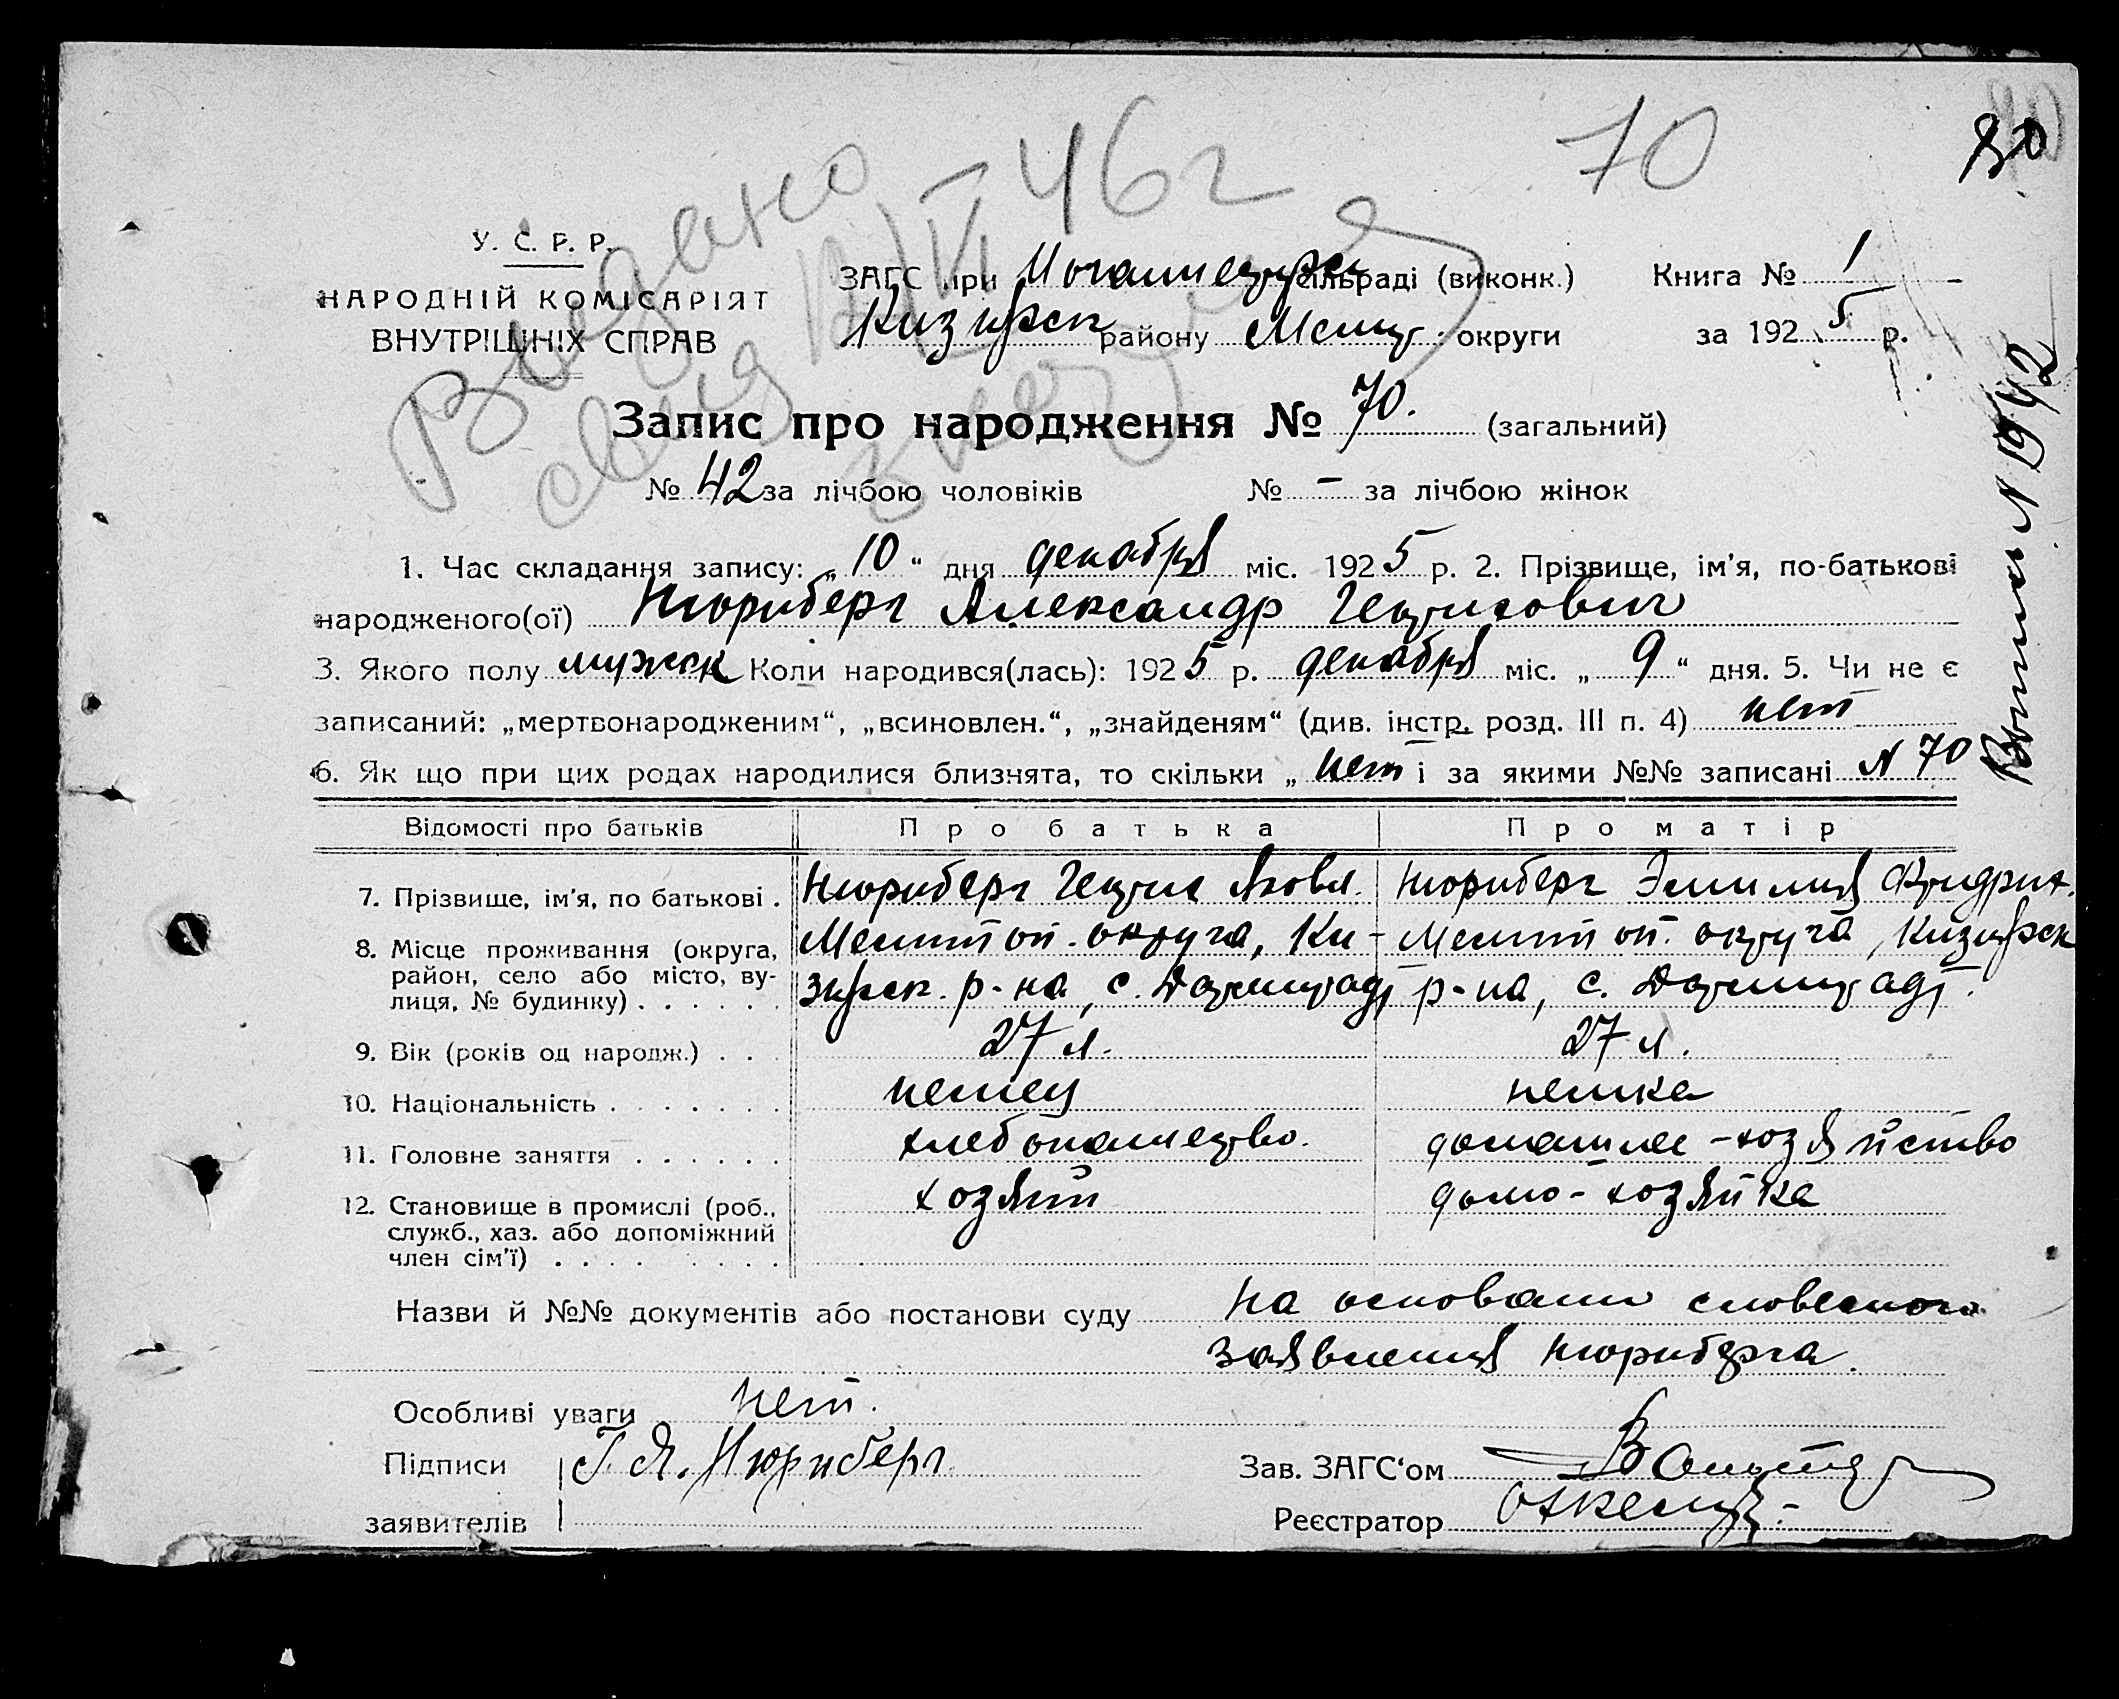 70
80
Видано
46 г
У. С. Р. Р.
НАРОДНІЙ КОМІСАРІЯТ
ВНУТРІШНІХ СПРАВ
ЗАГС при сільраді (виконк.) Книга № 1
району Мелит. округи за 1925 р.
Запис про народження № 70. (загальний)
№ 42 за лічбою чоловіків № – за лічбою жінок
1. Час складання запису: „10“ дня декабря міс. 1925 р. 2. Прізвище, ім'я, по-батькові
народженого(ої) Нюрнберг Александр Генрихович
3. Якого полу мужск Коли народився(лась): 1925 р. декабря міс. „9“ дня. 5. Чи не є
записаний: „мертвонародженим“, „всиновлен.“, „знайденям“ (див. інстр. розд. III п. 4) нет
6. Як що при цих родах народилися близнята, то скільки „ нет і за якими №№ записані N 70
N 1942
Відомості про батьків Про батька Про матір
7. Прізвище, ім'я, по батькові . Нюрнберг Генрих Яковл. Нюрнберг Эмилия Фридрих.
8. Місце проживання (округа, Мелитоп. округа, Ки- Мелитоп. округа,
район, село або місто, ву- р-на, с. р-на, с.
лиця, № будинку) . . . . . .
9. Вік (років од народж.) . . . 27 л. 27 л.
10. Національність . . . . . . . немец немка
11. Головне заняття . . . . . . хлебопашество. домашнее-хозяйство
12. Становище в промислі (роб., хозяин домо-хозяйка
служб., хаз. або допоміжний
член сім'ї) . . . . . . . .
Назви й №№ документів або постанови суду На основании словесного
заявления Нюрнберга.
Особливі уваги нет.
Підписи Г. Я. Нюрнберг Зав. ЗАГС'ом
заявителів Реєстратор